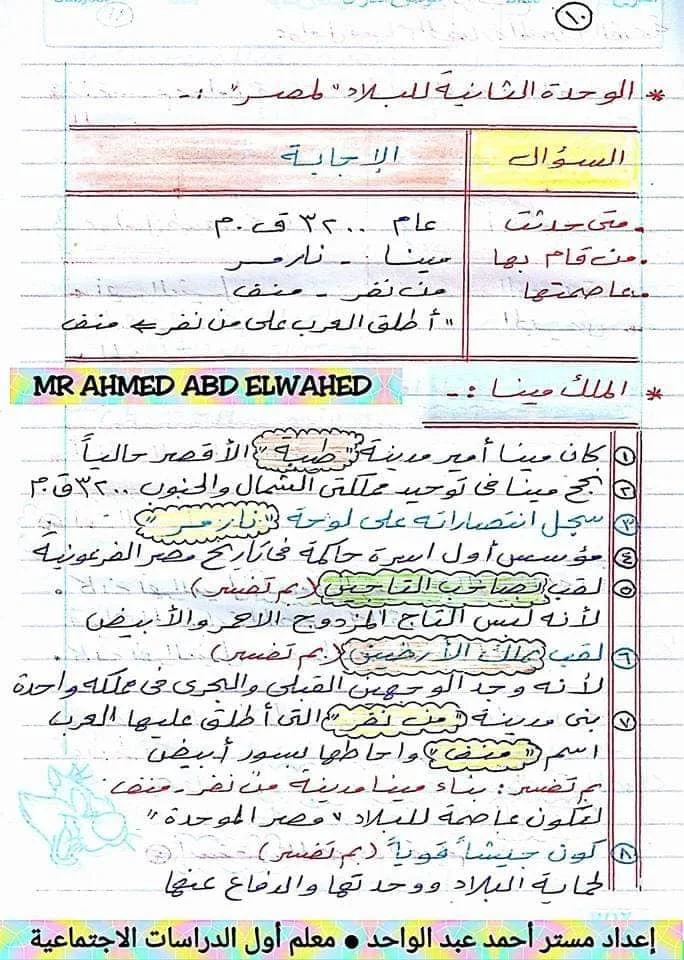 ١٠
* الوحدة الثانية للبلاد "لمصر" :-
السؤال
الإجابة
• متى حدثت
عام ٣٢٠٠ ق.م
• من قام بها
مينا - نارمر
• عاصمتها
من نفر - منف
"أطلق العرب على من نفر ← منف
MR AHMED ABD ELWAHED
* الملك مينا :-
١ كان مينا أمير مدينة "طيبة" الأقصر حالياً
٢ نجح مينا فى توحيد مملكتى الشمال والجنوب ٣٢٠٠ ق.م
٣ سجل انتصاراته على لوحة "نارمر"
٤ مؤسس أول اسرة حاكمة فى تاريخ مصر الفرعونية
٥ لقب بصاحب التاجين (بم تفسر) .
لأنه لبس التاج المزدوج الاحمر والأبيض
٦ لقب بملك الأرضين (بم تفسر) .
لأنه وحد الوجهين القبلى والبحرى فى مملكة واحدة
٧ بنى مدينة "من نفر" التى أطلق عليها العرب
اسم "منف" واحاطها بسور أبيض
بم تفسر : بناء مينا مدينة من نفر - منف
لتكون عاصمة للبلاد "مصر الموحدة"
٨ كون جيشاً قوياً (بم تفسر)
لحماية البلاد ووحدتها والدفاع عنها
إعداد مستر أحمد عبد الواحد • معلم أول الدراسات الاجتماعية